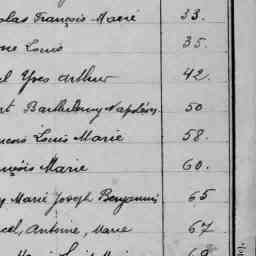 olas François Marie 33.
Louis 35.
Yves Arthur 42.
Barthélemy Napoléon 50
Louis Marie 58.
nçois Marie 60.
Marie Joseph Benjamin 65
cel, Antoine, Marie 67